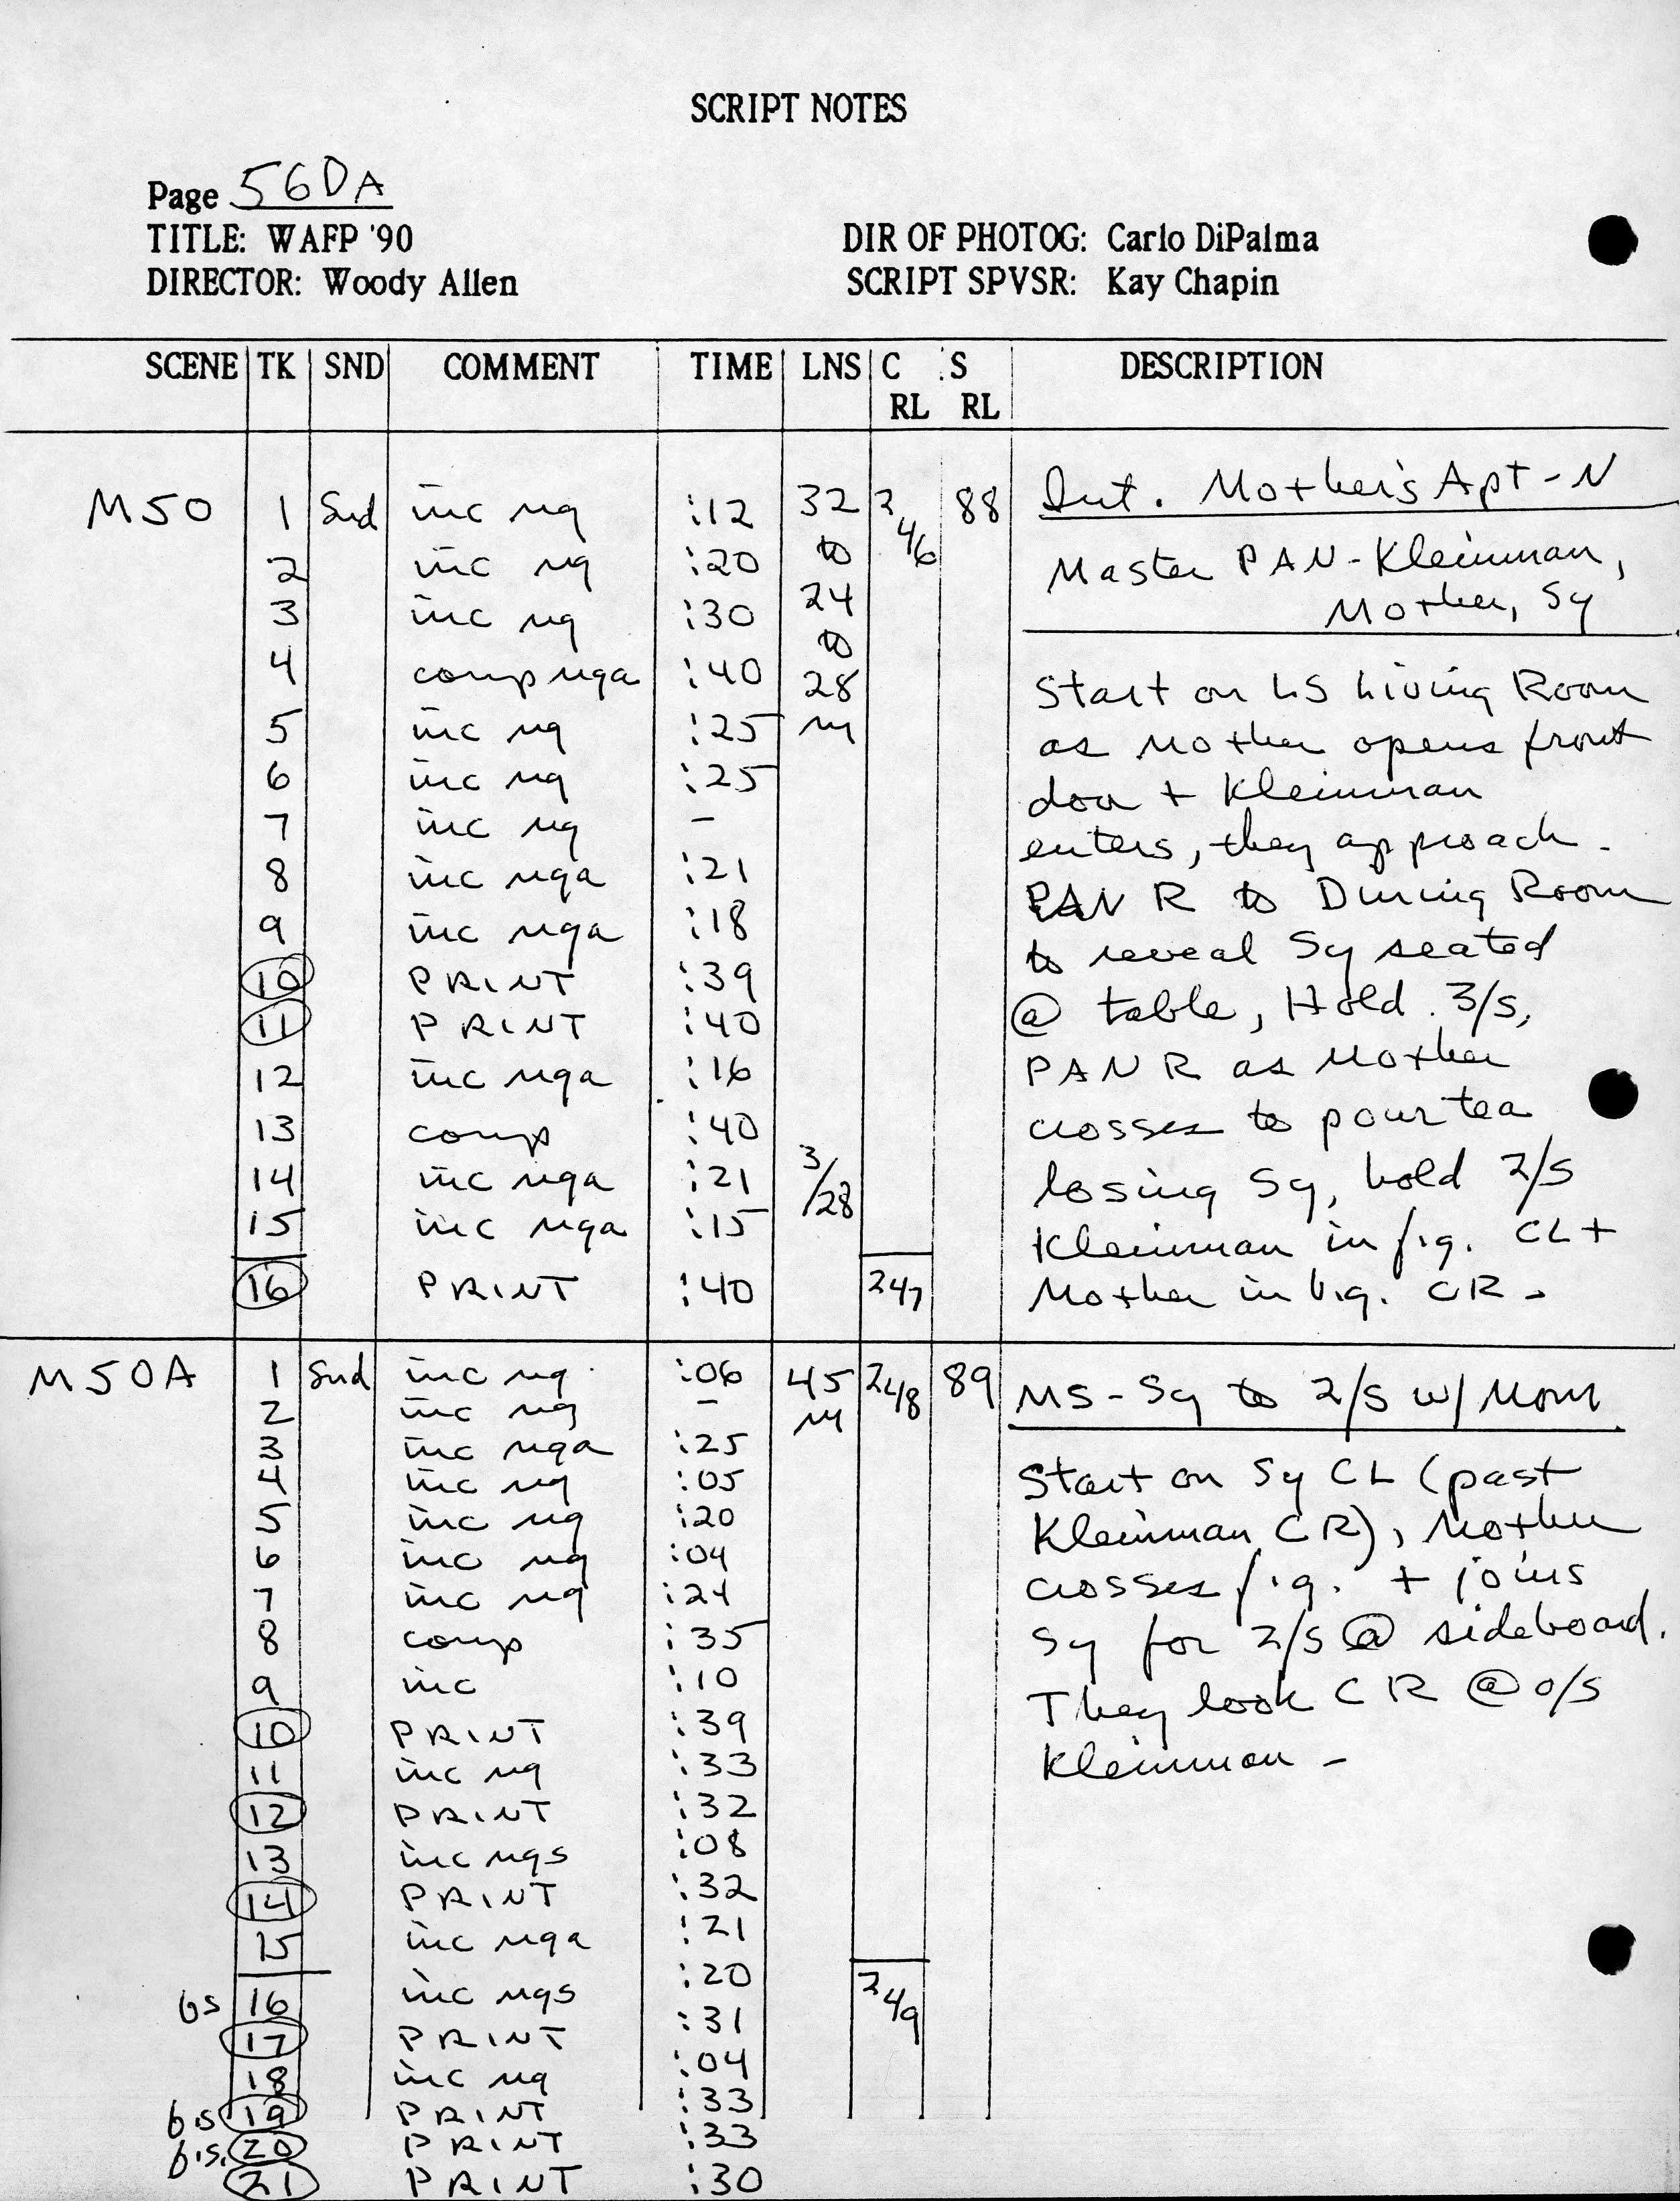 SCRIPT NOTES
Page 56DA
TITLE: WAFP '90 DIR OF PHOTOG: Carlo DiPalma
DIRECTOR: Woody Allen SCRIPT SPVSR: Kay Chapin
SCENE TK SND COMMENT TIME LNS C RL S RL DESCRIPTION
M50 1 Snd inc ng :12 32 246 88 Int. Mother's Apt - N
2 inc ng :20 to Master PAN - Kleinman,
3 inc ng :30 24 Mother, Sy
to
4 comp nga :40 28 Start on LS Living Room
5 inc ng :25 as Mother opens front
6 inc ng :25 door + Kleinman
7 inc ng - enters, they approach.
8 inc nga :21 PAN R to Dining Room
9 inc nga :18 to reveal Sy seated
10 PRINT :39 @ table, Hold 3/S,
11 PRINT :40 PAN R as Mother
12 inc nga :16 crosses to pour tea
13 comp :40 losing Sy, hold 2/S
14 inc nga :21 3/28 Kleinman in f.g. CL +
15 inc nga :15 Mother in b.g. CR -
16 PRINT :40 247
M50A 1 Snd inc ng :06 45 248 89 MS - Sy to 2/S w/ Mom
2 inc ng -
3 inc nga :25 Start on Sy CL (past
4 inc ng :05 Kleinman CR), Mother
5 inc ng :20 crosses f.g. + joins
6 inc ng :04 Sy for 2/S @ sideboard.
7 inc ng :24 They look CR @ o/s
8 comp :35 Kleinman -
9 inc :10
10 PRINT :39
11 inc ng :33
12 PRINT :32
13 inc ngs :08
14 PRINT :32
15 inc nga :21
16 inc ngs :20 249
17 PRINT :31
18 inc ng :04
f.s 19 PRINT :33
f.s. 20 PRINT :33
21 PRINT :30